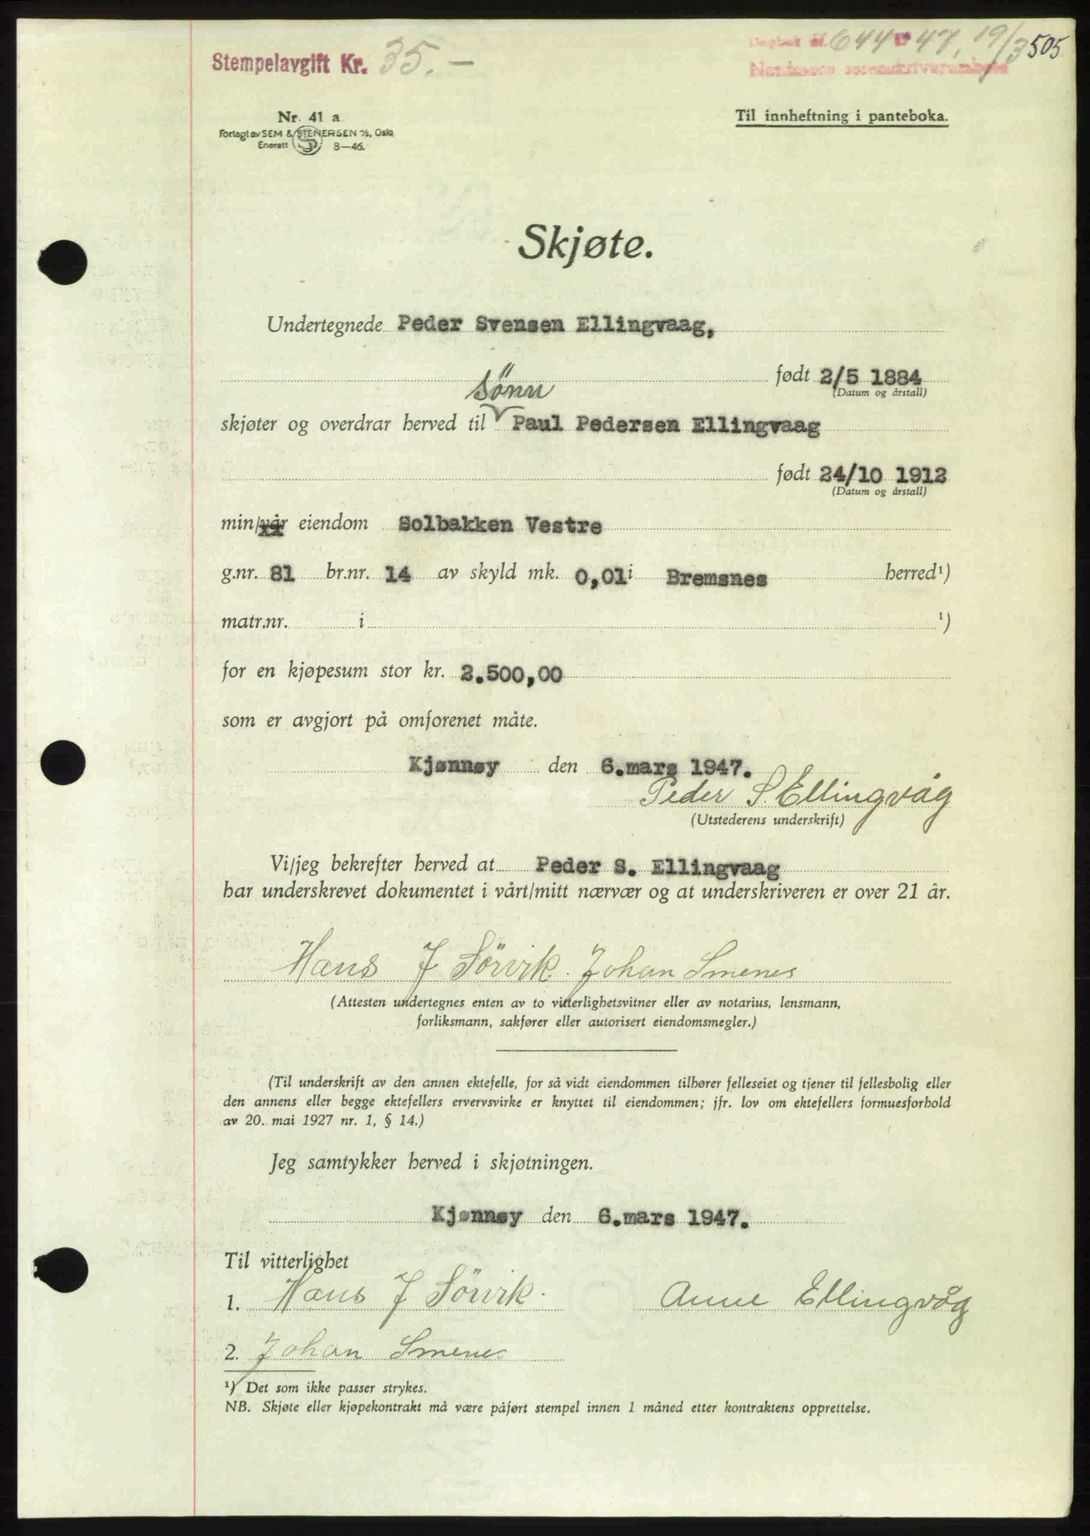 Stempelavgift Kr. 35.-
Dagbok nr. 644 47, 19/3 505
Nordmøre sorenskriverembete
Nr. 41 a
Forlagt av SEM & STENERSEN A/S, Oslo
Enerett 8-46.
Til innheftning i panteboka.
Skjøte.
Undertegnede Peder Svensen Ellingvaag,
født 2/5 1884
(Datum og årstall)
sønn
skjøter og overdrar herved til Paul Pedersen Ellingvaag
født 24/10 1912
(Datum og årstall)
min/vår eiendom Solbakken Vestre
g.nr. 81 br.nr. 14 av skyld mk. 0,01 i Bremsnes herred¹)
matr.nr. i ¹)
for en kjøpesum stor kr. 2.500,00
som er avgjort på omforenet måte.
Kjønnøy den 6.mars 1947.
Peder S. Ellingvåg
(Utstederens underskrift)
Vi/jeg bekrefter herved at Peder S. Ellingvaag
har underskrevet dokumentet i vårt/mitt nærvær og at underskriveren er over 21 år.
Hans J Sörvik. Johan Smenes
(Attesten undertegnes enten av to vitterlighetsvitner eller av notarius, lensmann,
forliksmann, sakfører eller autorisert eiendomsmegler.)
(Til underskrift av den annen ektefelle, for så vidt eiendommen tilhører felleseiet og tjener til fellesbolig eller
den annens eller begge ektefellers ervervsvirke er knyttet til eiendommen; jfr. lov om ektefellers formuesforhold
av 20. mai 1927 nr. 1, § 14.)
Jeg samtykker herved i skjøtningen.
Kjønnøy den 6.mars 1947.
Til vitterlighet
1. Hans J Sörvik. Anne Ellingvåg
2. Johan Smenes
¹) Det som ikke passer strykes.
NB. Skjøte eller kjøpekontrakt må være påført stempel innen 1 måned etter kontraktens opprettelse.